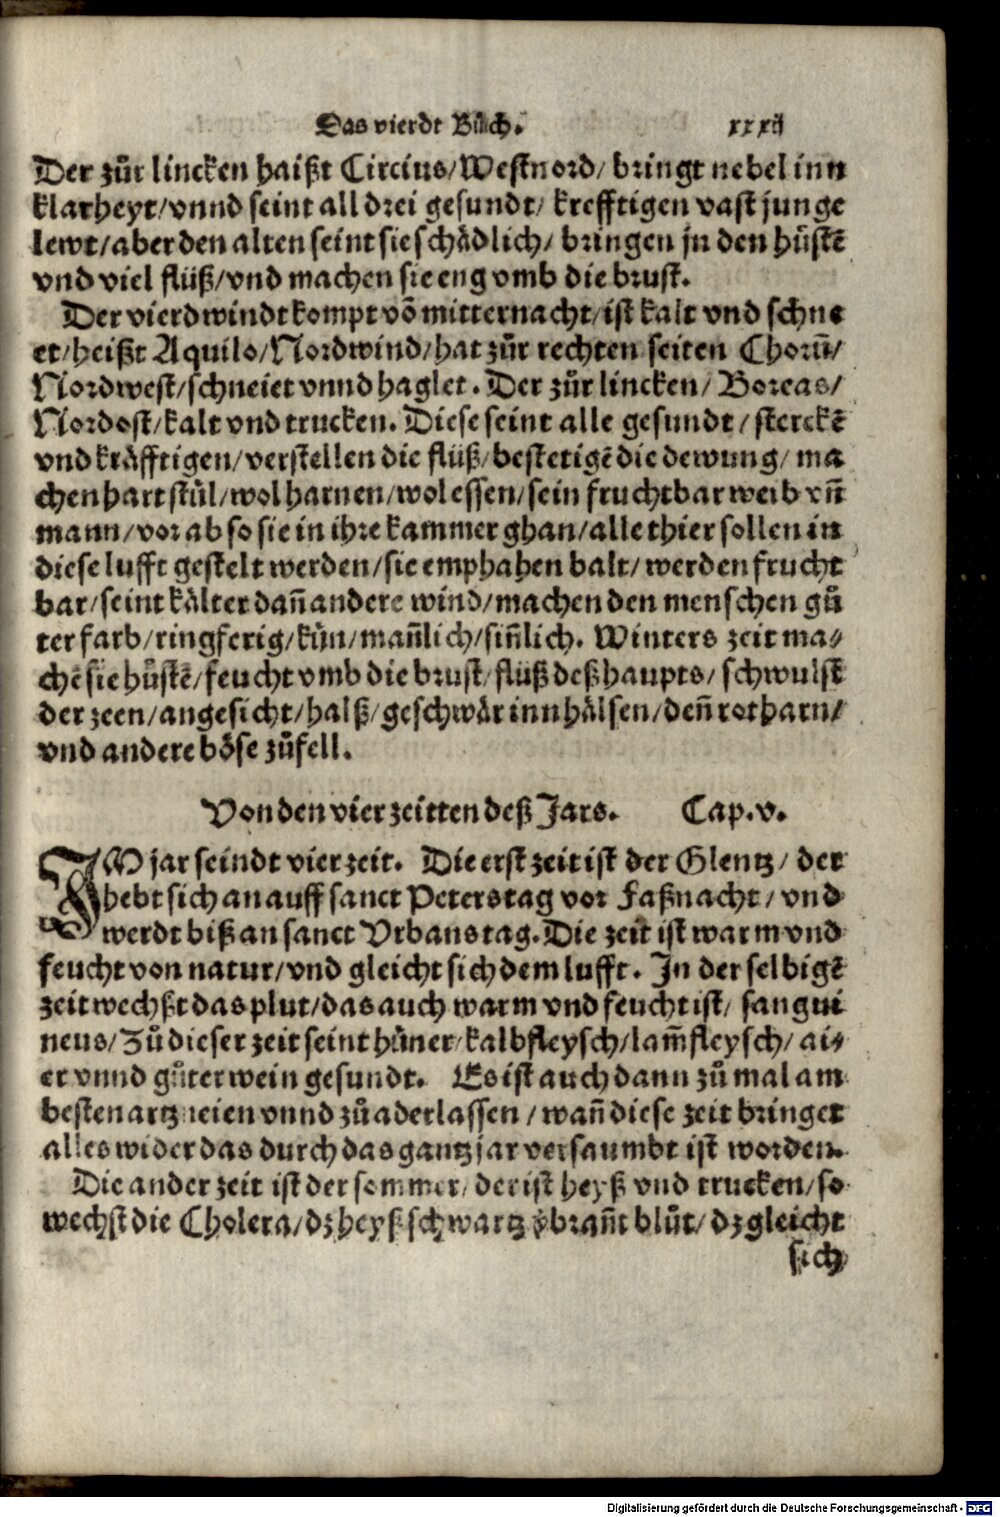 Das vierdt Bůch. xxxij
Der zůr lincken haißt Circius/Westnord/ bringt nebel inn
klarheyt/vnnd seint all drei gesundt/ krefftigen vast junge
lewt/aber den alten seint sie schådlich/ bringen jn den hůstē
vnd viel flüß/vnd machen sie eng vmb die brust.
Der vierd windt kompt vō mitternacht/ist kalt vnd schne
et/heißt Aquilo/Nordwind/hat zůr rechten seiten Chorū/
Nordwest/schneiet vnnd haglet. Der zůr lincken/ Boreas/
Nordost/kalt vnd trucken. Diese seint alle gesundt/ sterckē
vnd kråfftigen/verstellen die flüß/bestetigē die dewung/ ma
chen hart stůl/wol harnen/wol essen/sein fruchtbar weib vn̄
mann/vorab so sie in ihre kammer ghan/alle thier sollen in
diese lufft gestelt werden/sie emphahen balt/werden frucht
bar/seint kålter dan̄ andere wind/machen den menschen gů
ter farb/ringferig/kůn/man̄lich/sin̄lich. Winters zeit ma⸗
chē sie hůstē/feucht vmb die brust/flüß deß haupts/ schwulst
der zeen/angesicht/halß/geschwår inn hålsen/den̄ rotharn/
vnd andere bőse zůfell.
Von den vier zeitten deß Jars. Cap.v.
IM jar seindt vier zeit. Die erst zeit ist der Glentz/ der
hebt sich an auff sanct Peterstag vor Faßnacht/ vnd
werdt biß an sanct Vrbanstag. Die zeit ist warm vnd
feucht von natur/vnd gleicht sich dem lufft. In der selbigē
zeit wechßt das plut/das auch warm vnd feucht ist/ sangui
neus/Zů dieser zeit seint hůner/kalbfleysch/lam̄fleysch/ ai⸗
er vnnd gůter wein gesundt. Es ist auch dann zů mal am
besten artzneien vnnd zů aderlassen/wan̄ diese zeit bringet
alles wider das durch das gantz jar versaumbt ist worden.
Die ander zeit ist der sommer/ der ist heyß vnd trucken/so
wechst die Cholera/dz heyß schwartz v̈bran̄t blůt/dz gleicht
sich
Digitalisierung gefördert durch die Deutsche Forschungsgemeinschaft - DFG